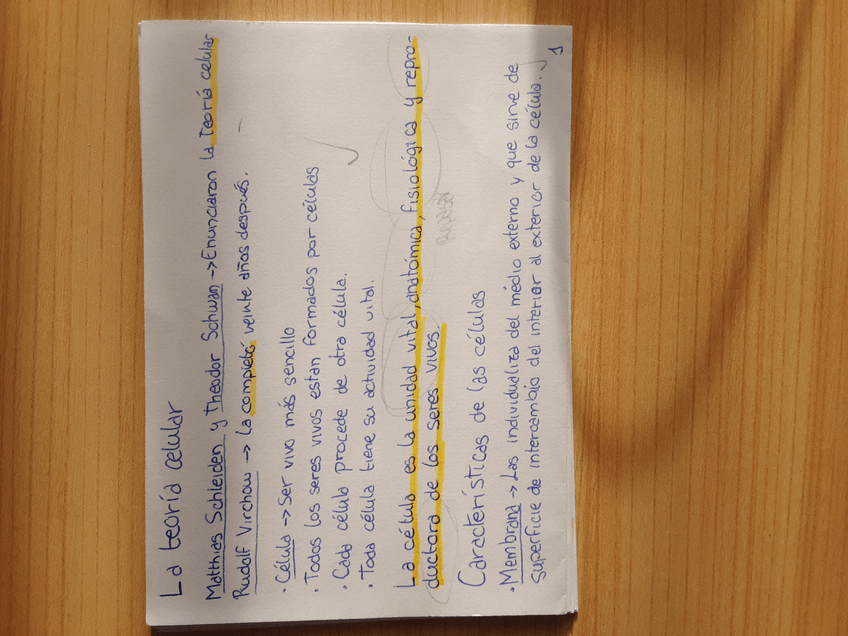 La teoría celular
Matthias Schleiden y Theodor Schwan -> Enunciaron la teoría celular
Rudolf Virchow -> La completó veinte años después.
· Célula -> Ser vivo más sencillo
· Todos los seres vivos estan formados por células
· Cada célula procede de otra célula.
· Toda célula tiene su actividad vital.
La célula es la unidad vital, anatómica, fisiológica y repro-
ductora de los seres vivos.
Características de las células
· Membrana -> Las individualiza del medio externo y que sirve de
superficie de intercambio del interior al exterior de la célula.
1